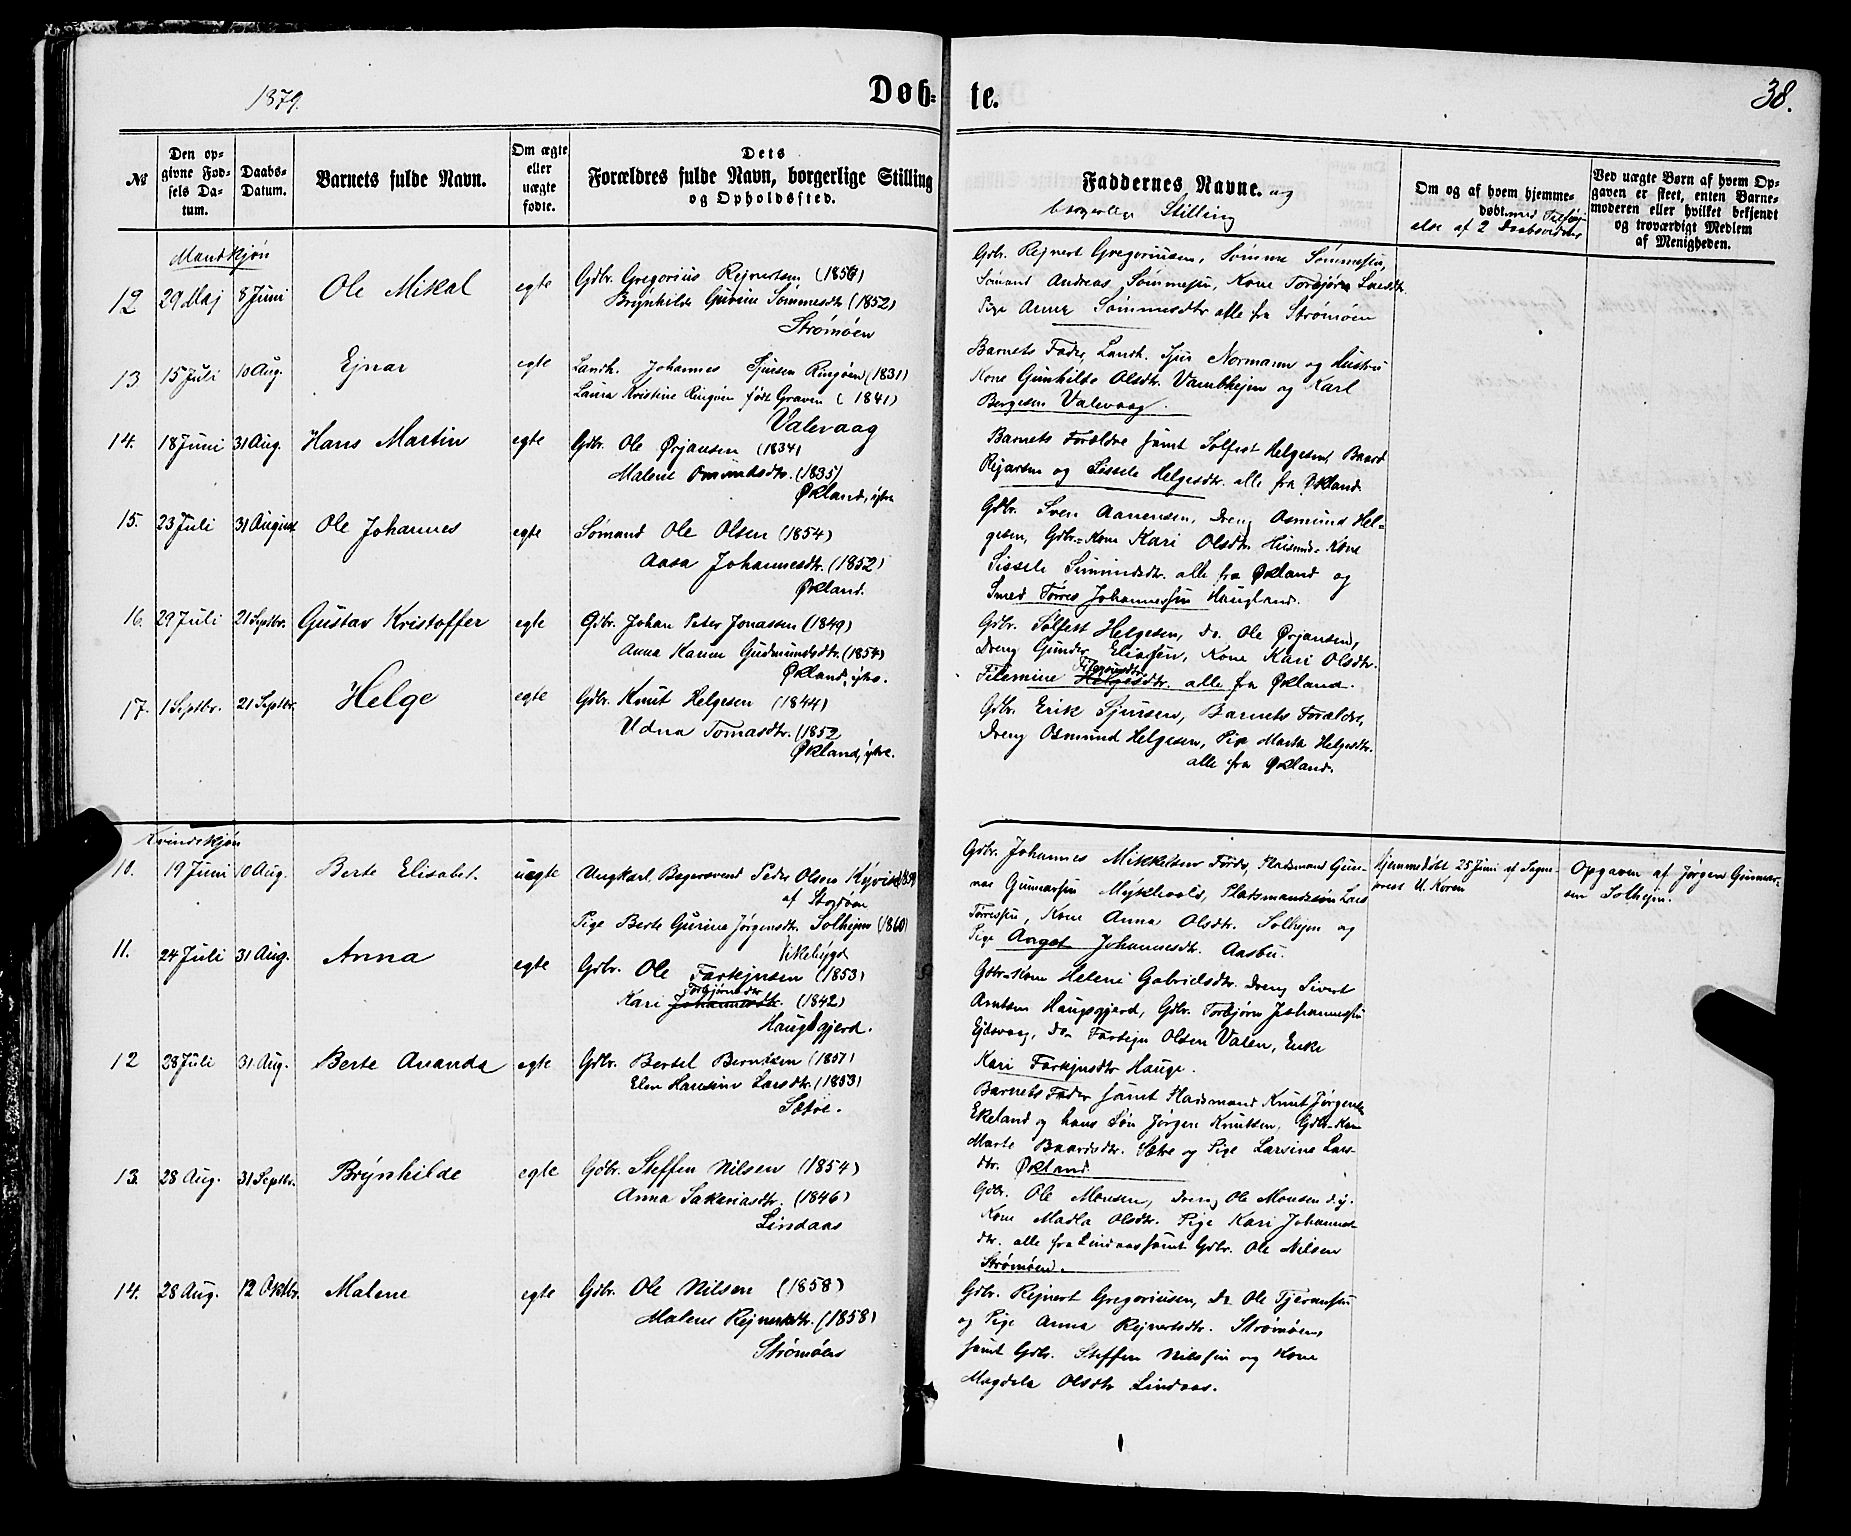 1879.
Døb-
te.
38.
№
Den op-
givne Fød-
sels Da-
tum.
Daabs-
Datum.
Barnets fulde Navn.
Om ægte
eller
uægte
fødte.
Dets
Forældres fulde Navn, borgerlige Stilling
og Opholdssted.
Faddernes Navne. og
borgerlige Stilling
Om og af hvem hjemme-
døbt med Tilføj-
else af 2 Daabsvidner
Ved uægte Børn af hvem Op-
gaven er skeet, enten Barne-
moderen eller hvilket bekjendt
og troværdigt Medlem
af Menigheden.
Mandkjøn
12 29 Maj 8 Juni Ole Mikal egte Gdbr. Gregorius Rejnertsen (1856)
Brynhilde Gurine Sømmesdtr (1852)
Strømøen
Gdbr. Rejnert Gregoriusen, Sømme Sømmesen,
Sømand Andreas Sømmesen, Kone Torbjørn Larsdtr.
Pige Anne Sømmesdtr alle fra Strømøen
13 15 Juli 10 Aug. Ejnar egte Landh. Johannes Sjursen Ringøen (1831)
Laura Kristine Ringøen født Graven (1841)
Valevaag
Barnets Fader, Landh. Sjur Normann og Hustru
Kone Gunhilde Olsdtr. Vambhejm og Karl
Bergesen Valevaag.
14. 18 Juni 31 Aug. Hans Martin egte Gdbr. Ole Ørjansen (1834)
Malene Omundsdtr. (1835)
Økland, ytre
Barnets Forældre samt Sølfest Helgesen, Baard
Rejarsen og Sissele Helgesdtr. alle fra Økland.
15. 23 Juli 31 August Ole Johannes egte Sømand Ole Olsen (1854)
Aasa Johannesdtr. (1852)
Økland.
Gdbr. Sven Aanensen, Dreng Osmund Hel-
gesen, Gdbr.-Kone Kari Olsdtr. Husmds-Kone
Sissele Simundsdtr. alle fra Økland og
Smed Tørres Johannessen Haugland.
16. 29 Juli 21 Septbr. Gustav Kristoffer egte Gdbr. Johan Peter Jonassen (1849)
Anna Karine Gudmundsdtr. (1854)
Økland, ytre.
Gdbr. Sølfest Helgesen, do. Ole Ørjansen,
Dreng Gunder Eliassen, Kone Kari Olsdtr.
Filemine Helgesdtr. alle fra Økland.
17. 1 Septbr. 21 Septbr. Helge egte Gdbr. Knut Helgesen (1844)
Udna Tomasdtr. (1852
Økland, ytre.
Gdbr. Erik Sjursen, Barnets Forældre,
Dreng Osmund Helgesen, Pige Marta Helgesdtr.
alle fra Økland.
Kvindekjøn
10. 19 Juni 10 Aug. Berte Elisabet. uegte Ungkarl Bagersvend Peder Olsen Kyvik
af Stordøen
Pige Berte Gurine Jørgensdtr. Solhejm (1860)
Vikebygd
Gdbr. Johannes Mikkelsen Førde, Pladsmand Gun-
nar Gunnarsen Myklevold, Pladsmandssøn Lars
Tørressen, Kone Anna Olsdtr. Solhejm og
Pige Anga Johannesdtr. Aasbu.
Hjemmedøbt 25 Juni af Sogne-
præst U. Koren
Opgaven af Jørgen Gunnar-
sen Solhejm.
11. 24 Juli 31 Aug. Anna egte Gdbr. Ole Tarkjnsen (1853)
Torbjørnsdtr
Kari Johannesdtr. (1842)
Haugsgjerd.
Gdbr-Kone Helene Gabrielsdtr. Dreng Sivert
Arntsen Haugsgjerd, Gdbr. Torbjørn Johannessen
Ejdsvaag, do Tarkejn Olsen Valen, Enke
Kari Tarkejnsdtr Hauge.
12 28 Juli 31 Aug. Berte Ananda egte Gdbr. Bertel Berntsen (1851)
Elen Hansine Larsdtr. (1853)
Sætre.
Barnets Fader samt Pladsmand Knut Jørgensen
Ekeland og hans Søn Jørgen Knutsen, Gdbr-Kone
Marte Baardsdtr. Sætre og Pige Larsine Lars-
dtr. Økland.
13. 28 Aug. 31 Septbr. Brynhilde egte Gdbr. Steffen Nilsen (1854)
Anna Sakariasdtr. (1846)
Lindaas
Gdbr. Ole Monsen, Dreng Ole Monsen d.y.
Kone Madla Olsdtr. Pige Kari Johannes-
dtr. alle fra Lindaas samt Gdbr. Ole Nilsen
Strømøen.
14. 28 Aug. 12 Oktbr. Malene egte Gdbr. Ole Nilsen (1858)
Malene Rejnertsdtr. (1858)
Strømøen
Gdbr. Rejnert Gregoriusen, Do Ole Tjeransen
og Pige Anna Rejnertsdtr. Strømøen,
samt Gdbr. Steffen Nilssen og Kone
Magdela Olsdtr Lindaas.